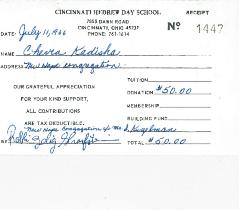 CINCINNATI HEBREW DAY SCHOOL
RECEIPT
7855 DAWN ROAD
CINCINNATI, OHIO 45237
PHONE: 761-1614
No 1447
DATE: July 11, 1966
NAME Chevra Kadisha
ADDRESS New Hope Congregation
OUR GRATEFUL APPRECIATION
FOR YOUR KIND SUPPORT,
ALL CONTRIBUTIONS
ARE TAX DEDUCTIBLE.
TUITION
DONATION $50.00
MEMBERSHIP
BUILDING FUND
New Hope Congregation c/o Mr. S. Kugelman
BY Rabbi
TOTAL $50.00